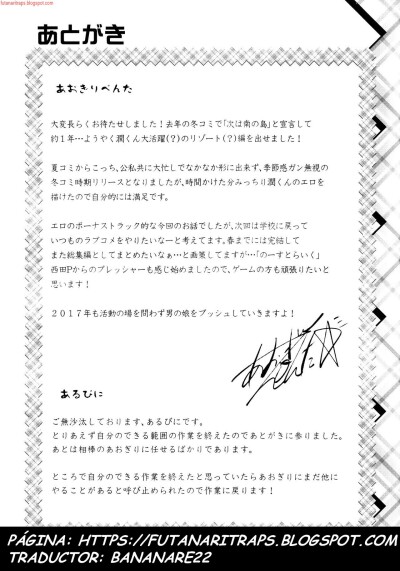 futanaritraps.blogspot.com
あとがき
あおきりぺんた
大変長らくお待たせしました！去年の冬コミで「次は南の島」と宣言して
約１年…ようやく潤くん大活躍（？）のリゾート（？）編を出せました！
夏コミからこっち、公私共に大忙しでなかなか形に出来ず、季節感ガン無視の
冬コミ時期リリースとなりましたが、時間かけた分みっちり潤くんのエロを
描けたので自分的には満足です。
エロのボーナストラック的な今回のお話でしたが、次回は学校に戻って
いつものラブコメをやりたいなーと考えてます。春までには完結して
また総集編としてまとめたいなぁ…と画策してますが…「のーすとらいく」
西田Pからのプレッシャーも感じ始めましたので、ゲームの方も頑張りたいと
思います！
２０１７年も活動の場を問わず男の娘をプッシュしていきますよ！
あるびに
ご無沙汰しております、あるびにです。
とりあえず自分のできる範囲の作業を終えたのであとがきに参りました。
あとは相棒のあおぎりに任せるばかりであります。
ところで自分のできる作業を終えたと思っていたらあおぎりにまだ他に
やることがあると呼び止められたので作業に戻ります！
PÁGINA: HTTPS://FUTANARITRAPS.BLOGSPOT.COM
TRADUCTOR: BANANARE22